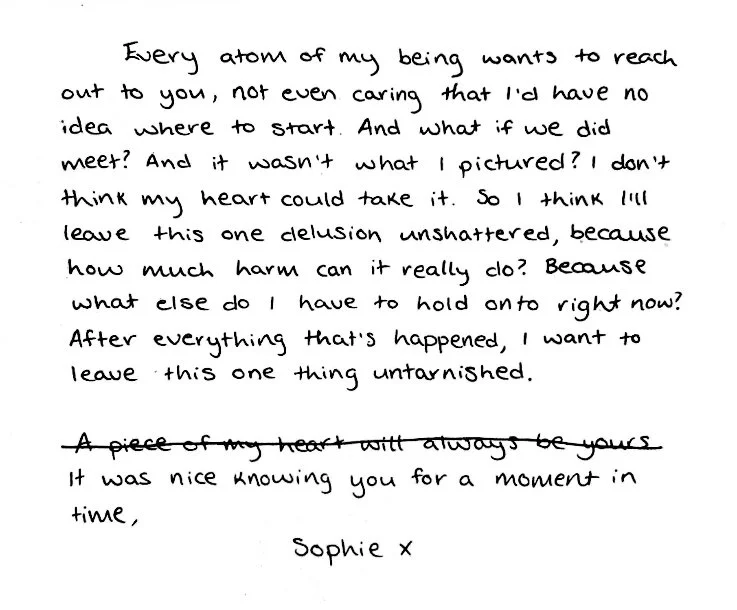 Every atom of my being wants to reach
out to you, not even caring that I'd have no
idea where to start. And what if we did
meet? And it wasn't what I pictured? I don't
think my heart could take it. So I think I'll
leave this one delusion unshattered, because
how much harm can it really do? Because
what else do I have to hold onto right now?
After everything that's happened, I want to
leave this one thing untarnished.
A piece of my heart will always be yours
It was nice knowing you for a moment in
time,
Sophie x